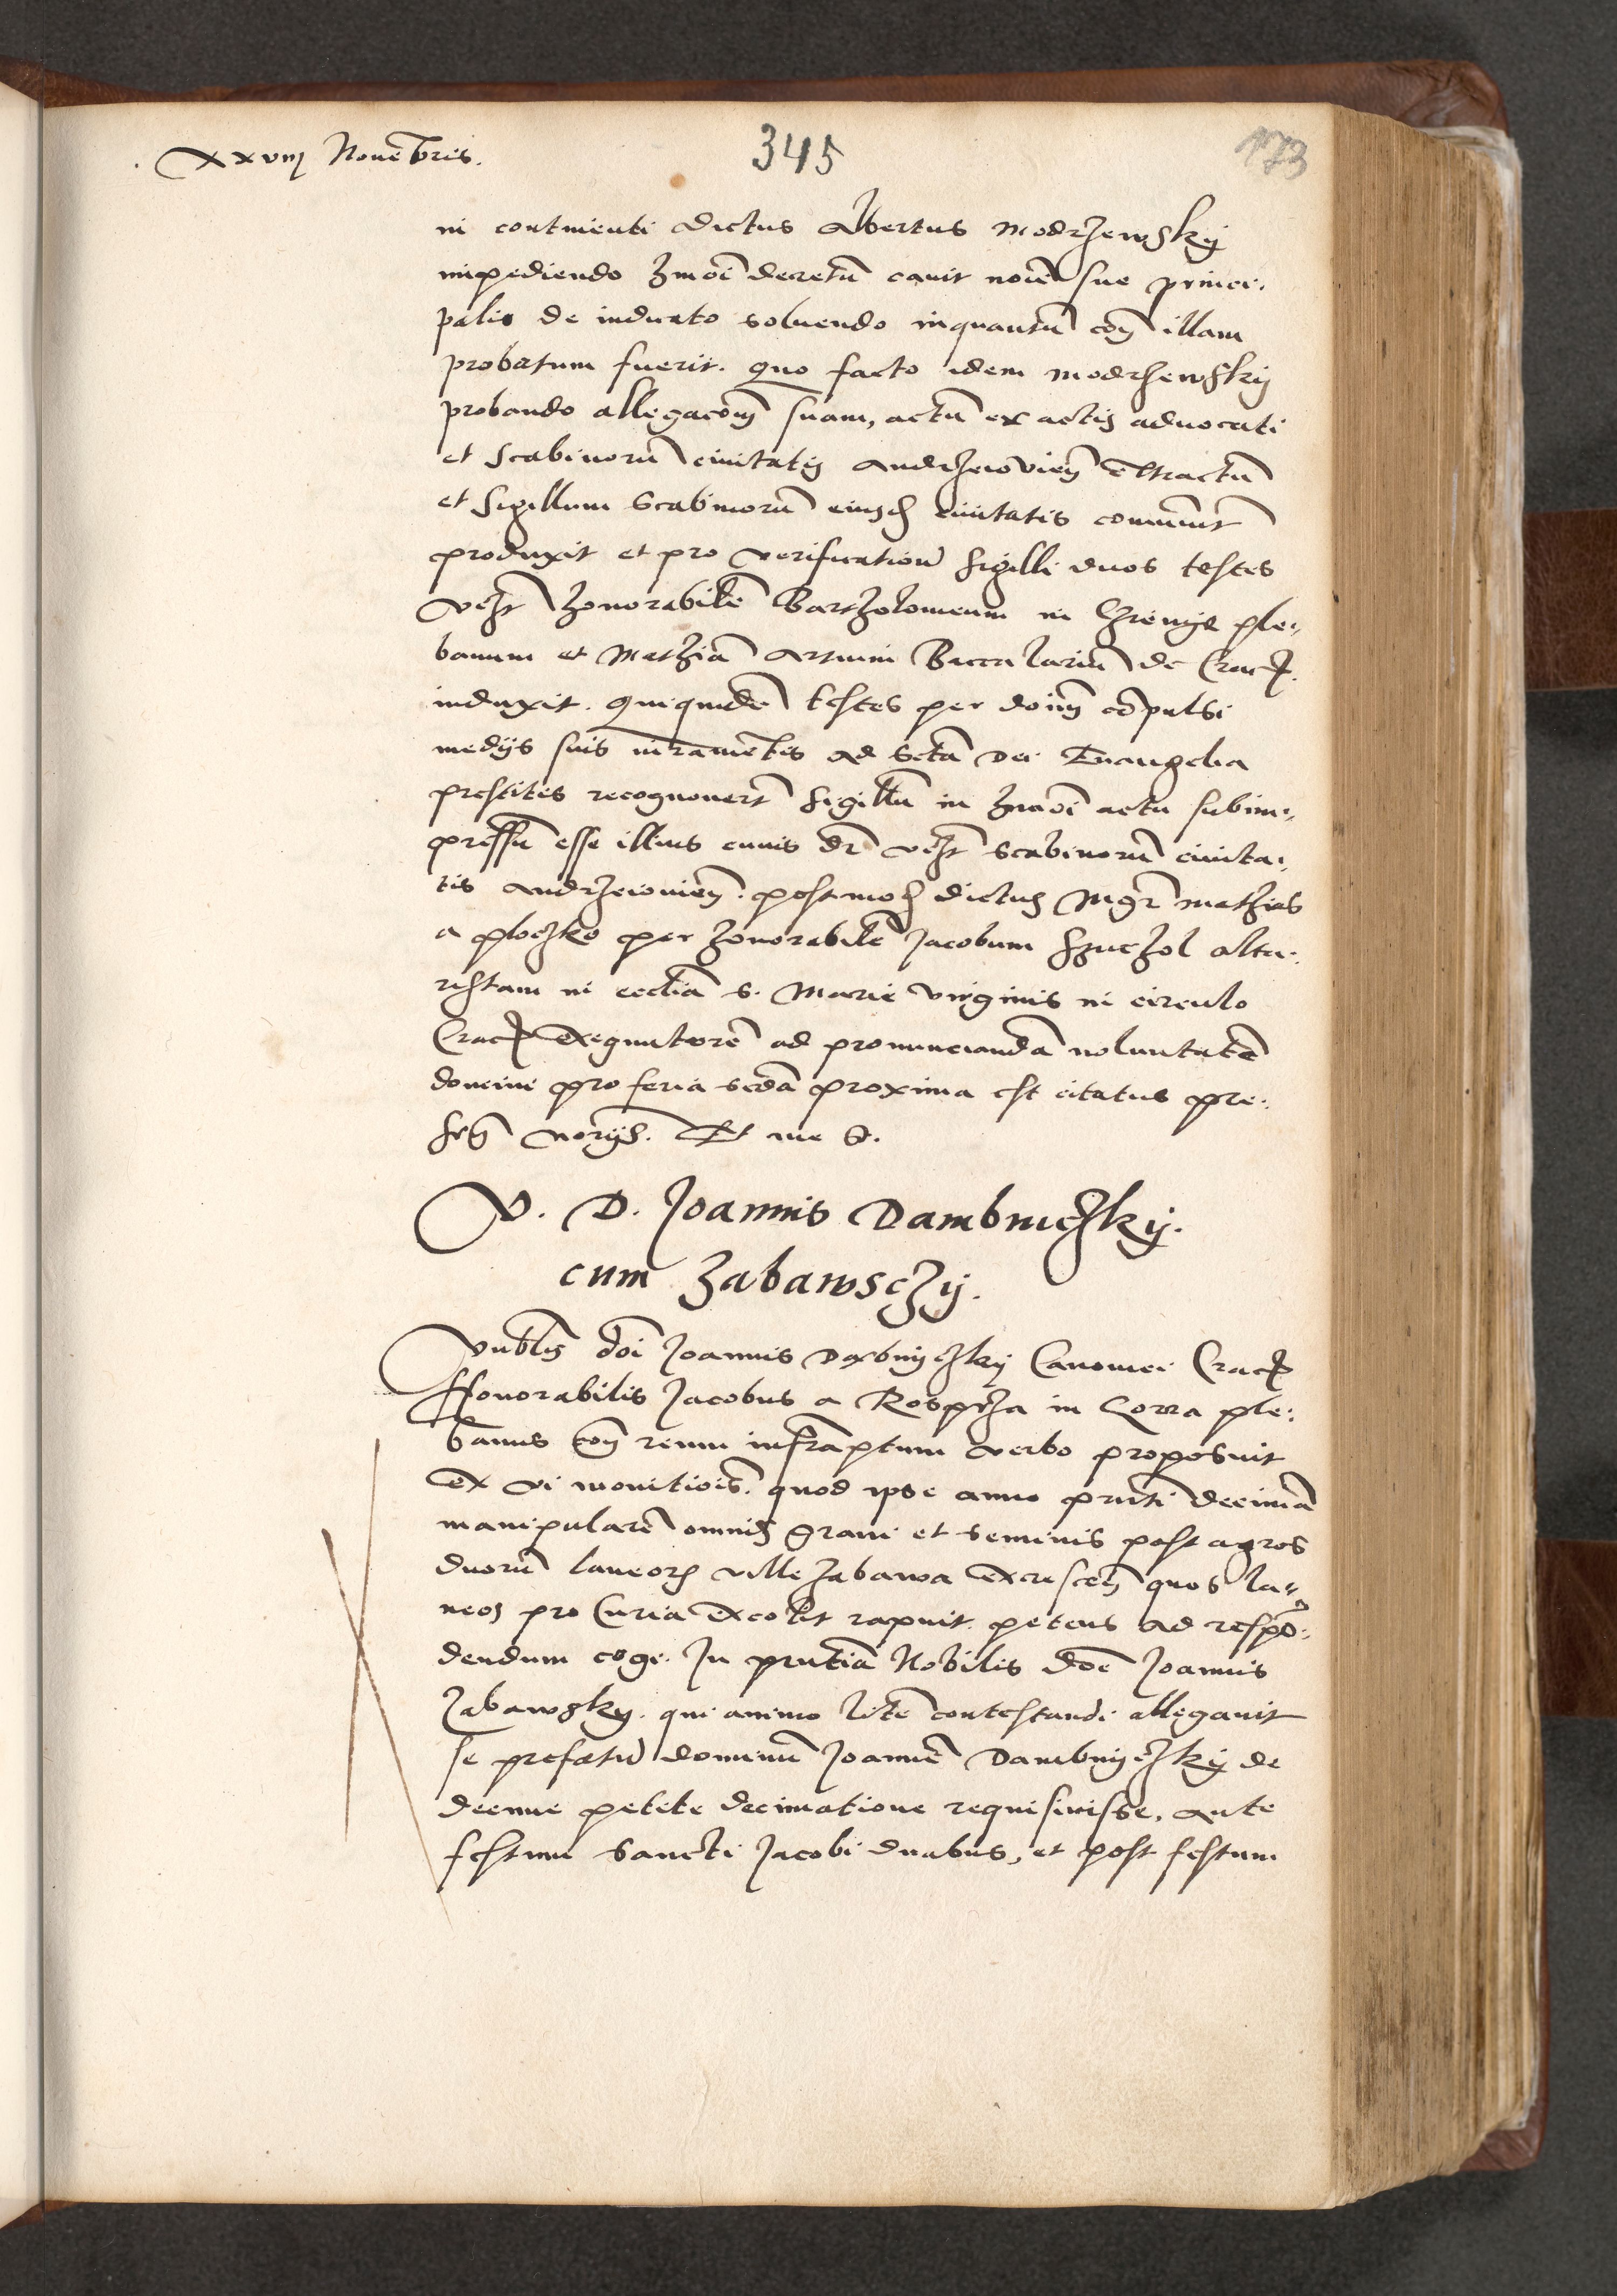 xxviij Nouẽbris.
345
173
in continenti dictus Albertus Modrzewsky
impediendo hmõi decretũ cauit noiẽ sue princi-
palis de iudicato soluendo inquantũ con illam
probatum fuerit. Quo facto idem Modrzewsky
probando allegacõnẽ suam, actũ ex actis aduocati
et scabinorũ ciuitatis Andrzeiovieñ extractũ
et sigillum scabinorũ eiusd ciuitatis comunitũ
produxit et pro verificatione sigilli duos testes
vczt honorabilẽ Bartholomeum in ple-
banum et Mathiã Artium Baccalariũ de Crac.
induxit. Quiquidẽ testes per doiũ cõpulsi
medijs suis iuramẽtis ad scta Dei Euangelia
prestitis recognouerũt sigillũ in hmõi actu subim-
pressũ esse illius cuius dr vczt scabinorũ ciuita-
tis Andrzeiovieñ. postmod dictus Mgr Mathias
a ploczko per honorabilẽ Jacobum alta-
ristam in ecclia S. Marie virginis in circulo
Crac exequutorẽ ad pronunciandã voluntatẽ
domini pro feria scda proxima est citatus pre-
Et me S.
V. D. Joannis Dambniczky.
cum Zabawsczy.
Vnblis dõi Joannis Dambnyczky Canonici Crac
Honorabilis Jacobus a Rospcza in Gorra ple-
banus con reum infrascriptum verbo proposuit
ex vi monitiõis. quod ipse anno prnti decimã
manipularẽ omnis grani et seminis post agros
duorũ laneor ville Zabawa excrescen quos la-
neos pro Curia excolit rapuit. petens ad respõ-
dendum cogi. In prntia Nobilis dõe Joannis
Zabawsky. qui animo litẽ contestandi allegauit
se prefatũ dominũ Joannẽ Dambnyczky de
decime petite decimatione requisiuisse, ante
festum Sancti Jacobi duabus, et post festum